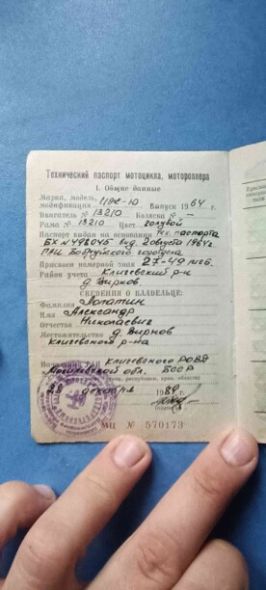 Технический паспорт мотоцикла, мотороллера
1. Общие данные
Марка, модель,
модификация ИЖ-Ю Выпуск 1964 г.
Двигатель № 13210 Коляска № -
Рама № 13210 Цвет голубой
Паспорт выдан на основании тех. паспорта
БХ № 498045 выд. 2 августа 1964 г.
ГАИ Бобруйского
Присвоен номерной знак 25-49
Район учета Кличевский р-н
д. Бирков
СВЕДЕНИЯ О ВЛАДЕЛЬЦЕ:
Фамилия Лопатин
Имя Александр
Отчество Николаевич
Местожительство д. Бирков
Кличевского р-на
Кличевского РОВД
Могилевской обл. БССР
республики, края, области
28 декабря 198
МЦ № 570173